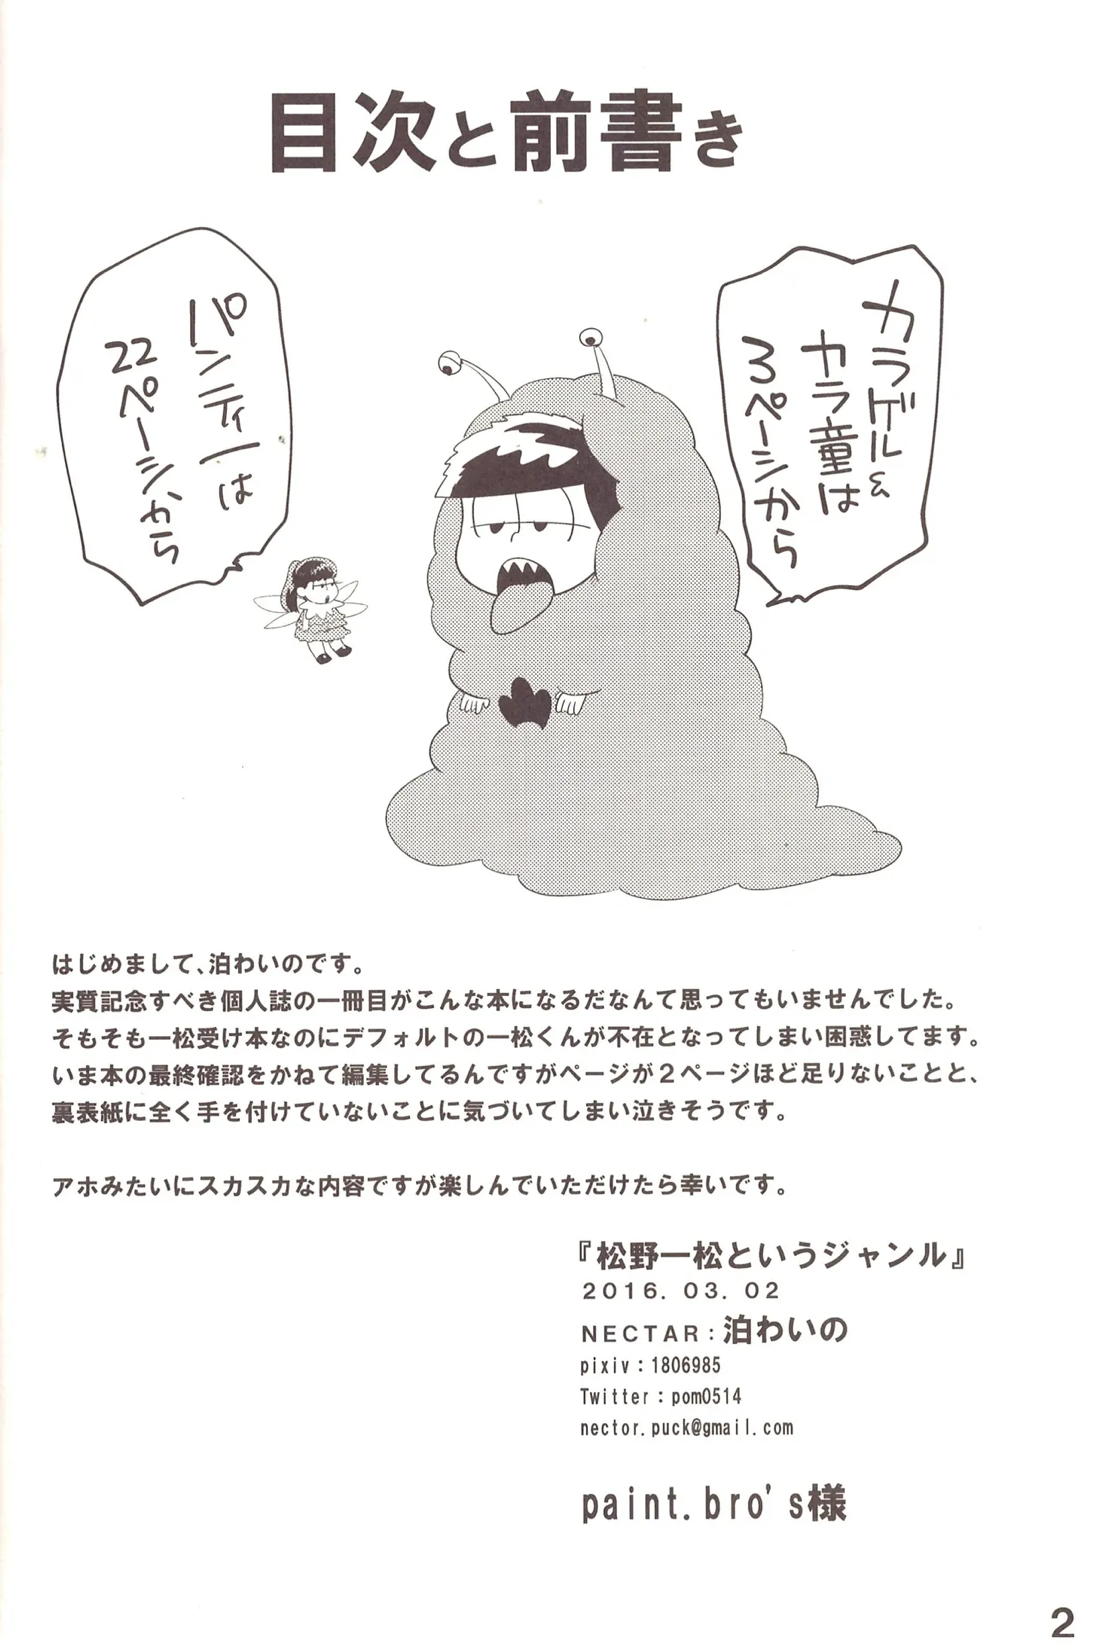 目次と前書き
カラゲル&
カラ童は
3ページから
パンティーは
22ページから
はじめまして、泊わいのです。
実質記念すべき個人誌の一冊目がこんな本になるだなんて思ってもいませんでした。
そもそも一松受け本なのにデフォルトの一松くんが不在となってしまい困惑してます。
いま本の最終確認をかねて編集してるんですがページが２ページほど足りないことと、
裏表紙に全く手を付けていないことに気づいてしまい泣きそうです。
アホみたいにスカスカな内容ですが楽しんでいただけたら幸いです。
『松野一松というジャンル』
2016. 03. 02
NECTAR：泊わいの
pixiv：1806985
Twitter：pom0514
nector.puck@gmail.com
paint.bro's様
2